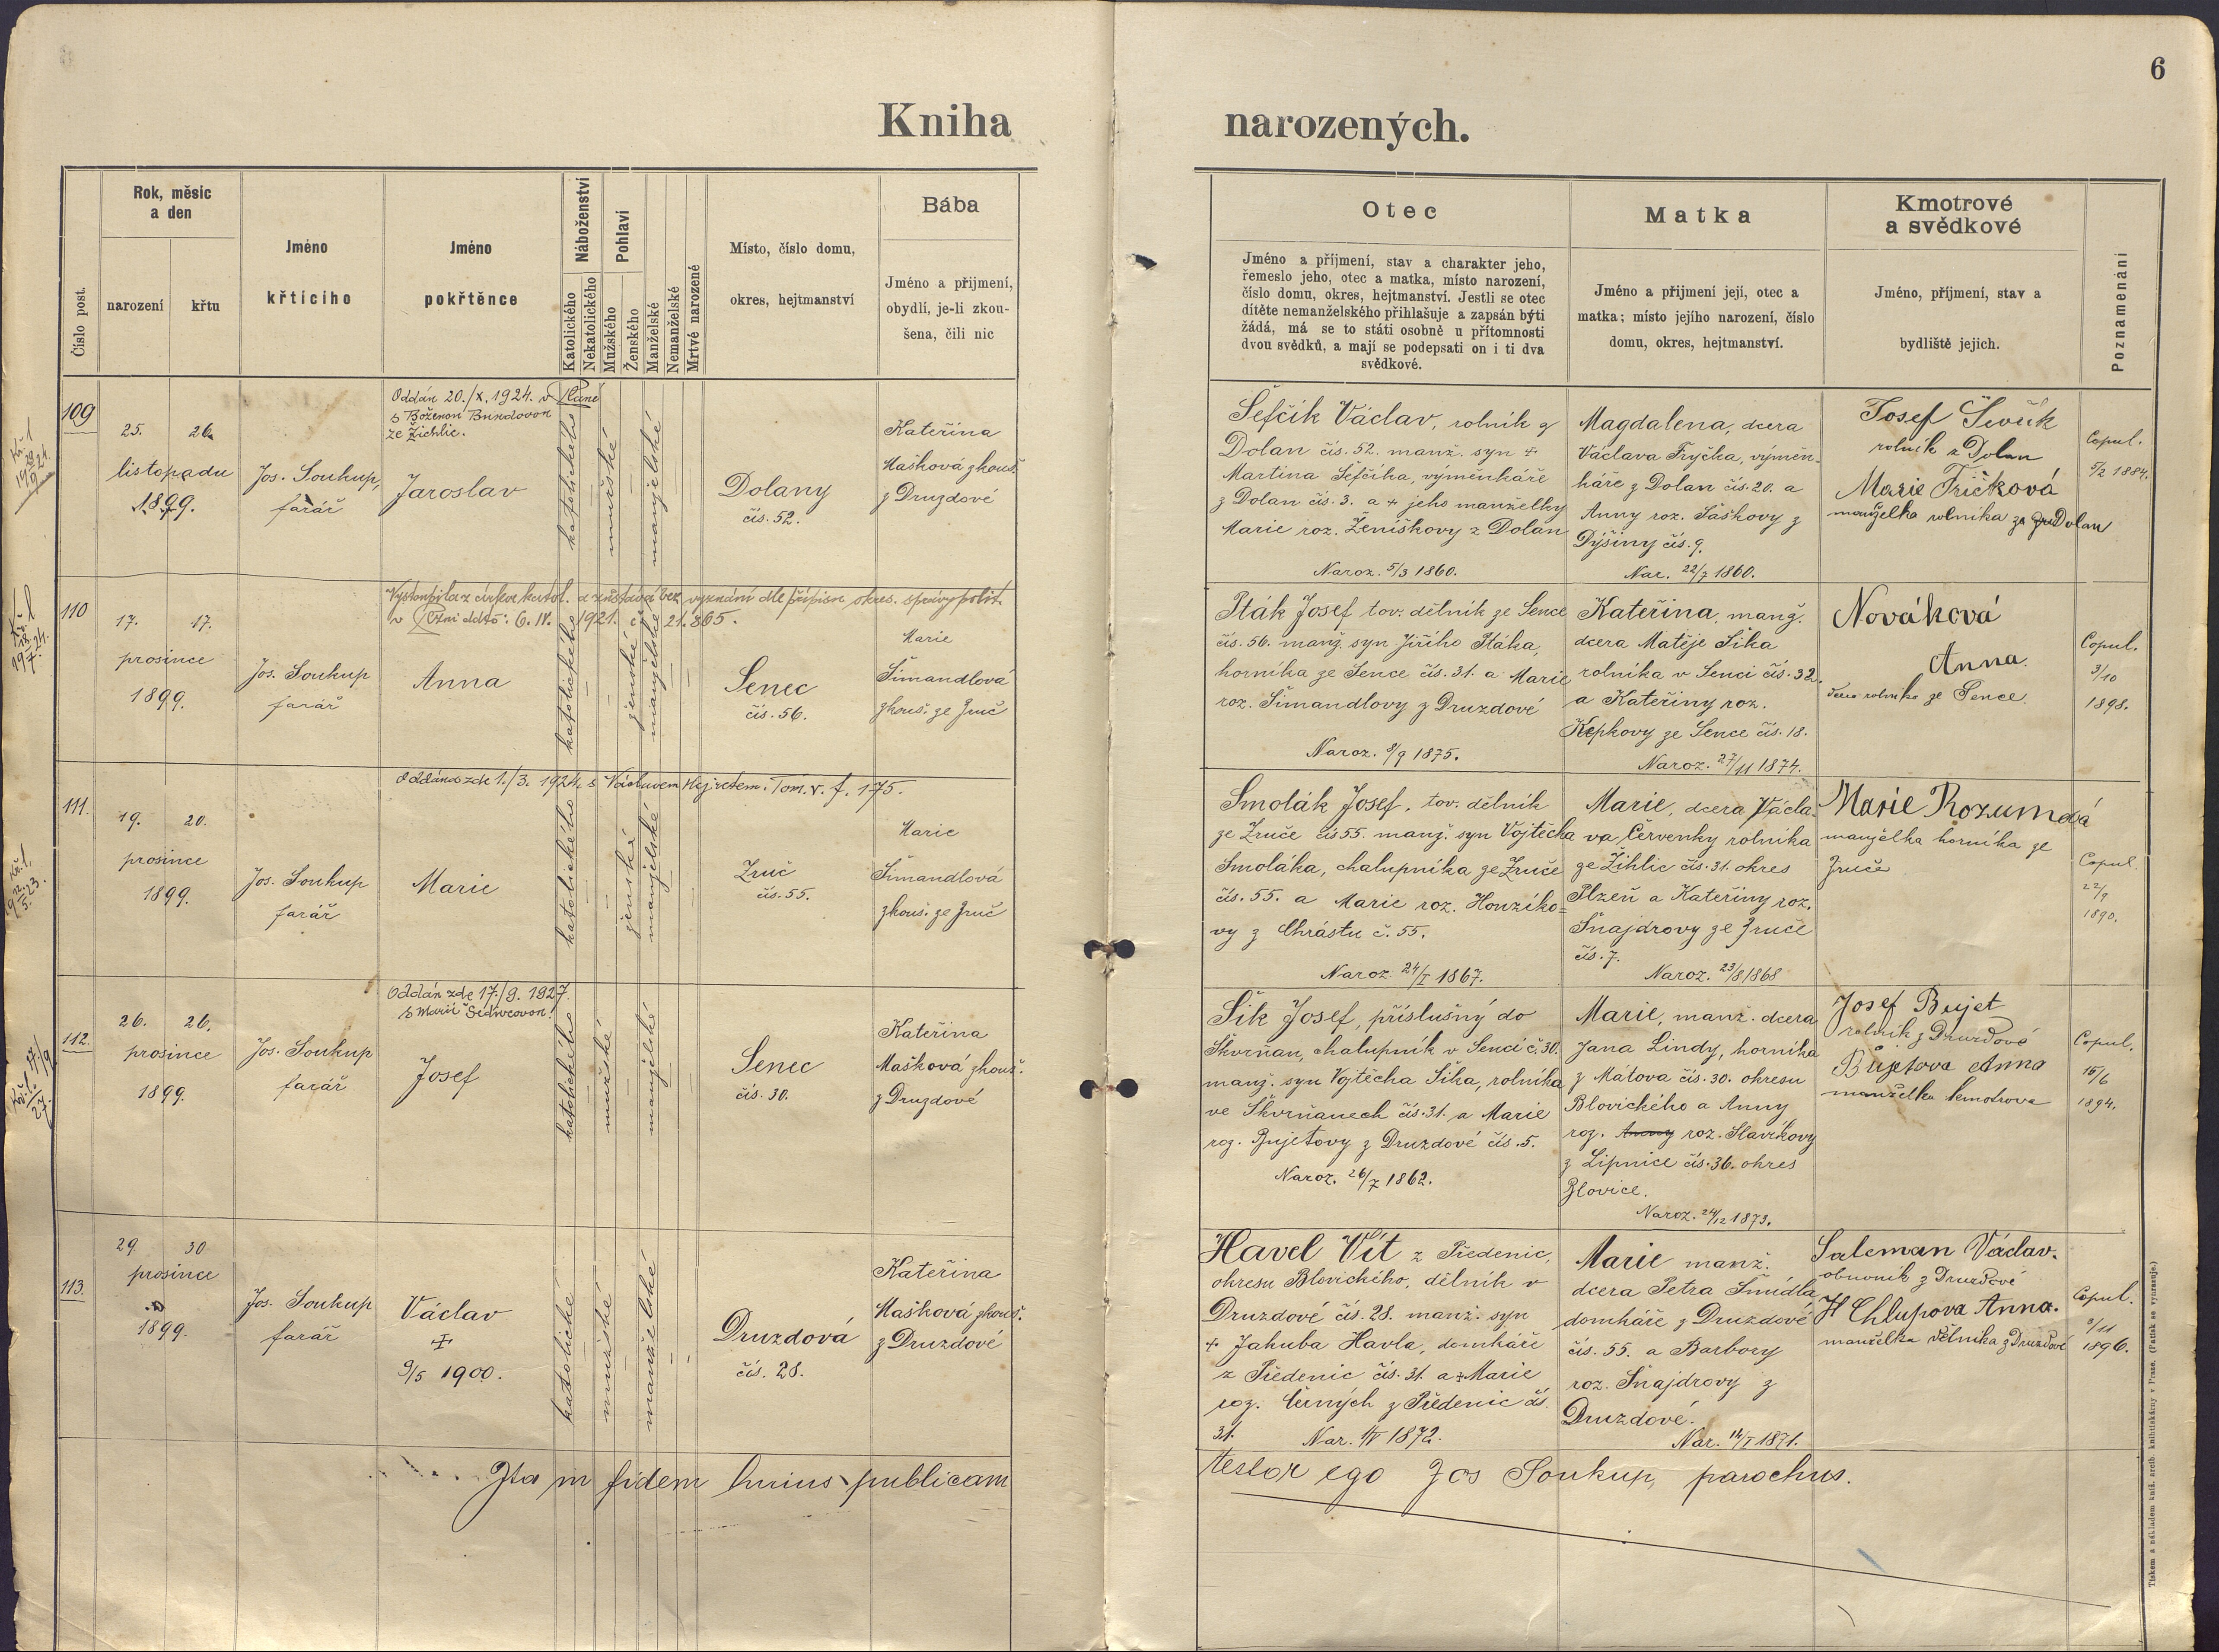 6
Kniha narozených.
Číslo post.
Rok, měsíc
a den
narození
křtu
Jméno
křticího
Jméno
pokřtěnce
Náboženství
Katolického
Nekatolického
Pohlaví
Mužského
Ženského
Manželské
Nemanželské
Mrtvě narozené
Místo, číslo domu,
okres, hejtmanství
Bába
Jméno a přijmení,
obydlí, je-li zkou-
šena, čili nic
Otec
Jméno a příjmení, stav a charakter jeho,
řemeslo jeho, otec a matka, místo narození,
číslo domu, okres, hejtmanství. Jestli se otec
dítěte nemanželského přihlašuje a zapsán býti
žádá, má se to státi osobně u přítomnosti
dvou svědků, a mají se podepsati on i ti dva
svědkové.
Matka
Jméno a přijmení její, otec a
matka; místo jejího narození, číslo
domu, okres, hejtmanství.
Kmotrové
a svědkové
Jméno, příjmení, stav a
bydliště jejich.
Poznamenání
109
25. 26.
listopadu
1899.
Jos. Soukup,
farář
Oddán 20./X. 1924. v Plané
s Boženou Burdovou
ze Žichlic.
Jaroslav
katolického
mužské
manželské
Dolany
čís. 52.
Kateřina
Mašková zkouš.
z Druzdové
Šefčík Václav, rolník z
Dolan čís. 52. manž. syn +
Martina Šefčíka, výměnkáře
z Dolan čís. 3. a + jeho manželky
Marie roz. Ženíškovy z Dolan
Naroz. 5/3 1860.
Magdalena, dcera
Václava Fryčka, výměn-
káře z Dolan čís. 20. a
Anny roz. Šaškovy z
Dýšiny čís. 9.
Nar. 22/7 1860.
Josef
rolník z Dolan
Marie Fričková
manželka rolníka z Dolan
Copul.
5/2 1884.
110
17. 17.
prosince
1899.
Jos. Soukup
farář
Vystoupila z církve katol. a zůstává bez vyznání dle přípisu okres. správy polit.
v Plzni ddto: 6. IV. 1921. č. 21.865.
Anna
katolického
ženské
manželské
Senec
čís. 56.
Marie
Šimandlová
zkouš. ze Zruč
Pták Josef, tov. dělník ze Sence
čís. 56. manž. syn Jiřího Ptáka,
horníka ze Sence čís. 31. a Marie
roz. Šimandlovy z Druzdové
Naroz. 8/9 1875.
Kateřina, manž.
dcera Matěje Šika
rolníka v Senci čís. 32.
a Kateřiny roz.
Kepkovy ze Sence čís. 18.
Naroz. 27/11 1874.
Nováková
Anna.
dcera rolníka ze Sence.
Copul.
3/10
1898.
111.
19. 20.
prosince
1899.
Jos. Soukup
farář
Oddána zde 1./3. 1924. s Václavem Hejretem. Tom. V. f. 175.
Marie
katolického
ženské
manželské
Zruč
čís. 55.
Marie
Šimandlová
zkouš. ze Zruč
Smolák Josef, tov. dělník
ze Zruče čís 55. manž. syn Vojtěcha
Smoláka, chalupníka ze Zruče
čís. 55. a Marie roz. Houzíko=
vy z Chrástu č. 55.
Naroz 24/I 1867.
Marie, dcera Václa-
va Červenky rolníka
ze Žihlic čís. 31. okres
Plzeň a Kateřiny roz.
Šnajdrovy ze Zruče
čís. 7.
Naroz. 23/8 1868
Marie Rozumová
manželka horníka ze
Zruče
Copul.
22/9
1890.
112.
26. 26.
prosince
1899.
Jos. Soukup
farář
Oddán zde 17./9. 1927.
s Marií
Josef
katolického
mužské
manželské
Senec
čís. 30.
Kateřina
Mašková zkouš.
z Druzdové
Šik Josef, příslušný do
Skvrňan, chalupník v Senci č. 30.
manž. syn Vojtěcha Šika, rolníka
ve Skvrňanech čís. 31. a Marie
roz. Bujetovy z Druzdové čís. 5.
Naroz. 26/7 1862.
Marie, manž. dcera
Jana Lindy, horníka
z Mátova čís. 30. okresu
Blovického a Anny
roz. Anny roz. Slavíkovy
z Lipnice čís. 36. okres
Blovice.
Naroz. 24/12 1873.
Josef Bujet
rolník z Druzdové
Bujetova Anna
manželka kmotrova
Copul.
16/6
1894.
113.
29. 30
prosince
1899.
Jos. Soukup
farář
Václav
+
9/5 1900.
katolické
mužské
manželské
Druzdová
čís. 28.
Kateřina
Mašková zkouš.
z Druzdové
Havel Vít z Předenic,
okresu Blovického, dělník v
Druzdové čís. 28. manž. syn
+ Jakuba Havla, domkáře
z Předenic čís. 31. a + Marie
roz. Černých z Předenic čís.
31.
Nar. 1/V 1872.
Marie manž.
dcera Petra Šmídla
domkáře z Druzdové
čís. 55. a Barbory
roz. Šnajdrovy z
Druzdové.
Nar. 14/I 1871.
Saleman Václav.
obuvník z Druzdové
Chlupova Anna.
manželka dělníka z Druzdové
Copul.
3/11
1896.
Ita in fidem huius publicam testor ego Jos Soukup, parochus.
Tiskem a nákladem kníž. arcib. knihtiskárny v Praze. (Patisk se vyhrazuje.)